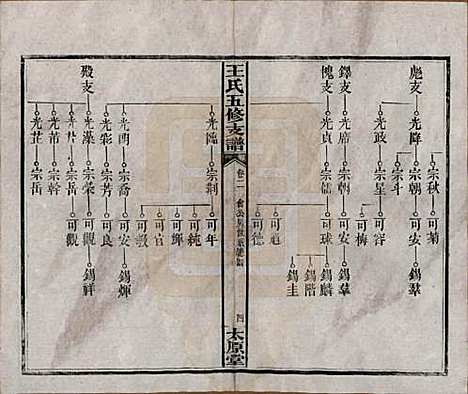 彪支
光降
宗秋
可菊
宗朝
可安
錫羣
宗斗
光政
宗星
可容
可梅
鐸支
光席
宗朝
可安
錫羣
槐支
光貞
宗儒
可球
錫麟
錫階
錫圭
可德
王氏五修支譜
卷二
四
太原堂
光臨
宗制
可年
可統
可鄉
可官
可教
光酉
宗喬
可安
錫煇
光彩
宗芳
可良
殿支
光藻
宗榮
可觀
錫祥
宗岳
可觀
光芾
宗幹
光芷
宗岳